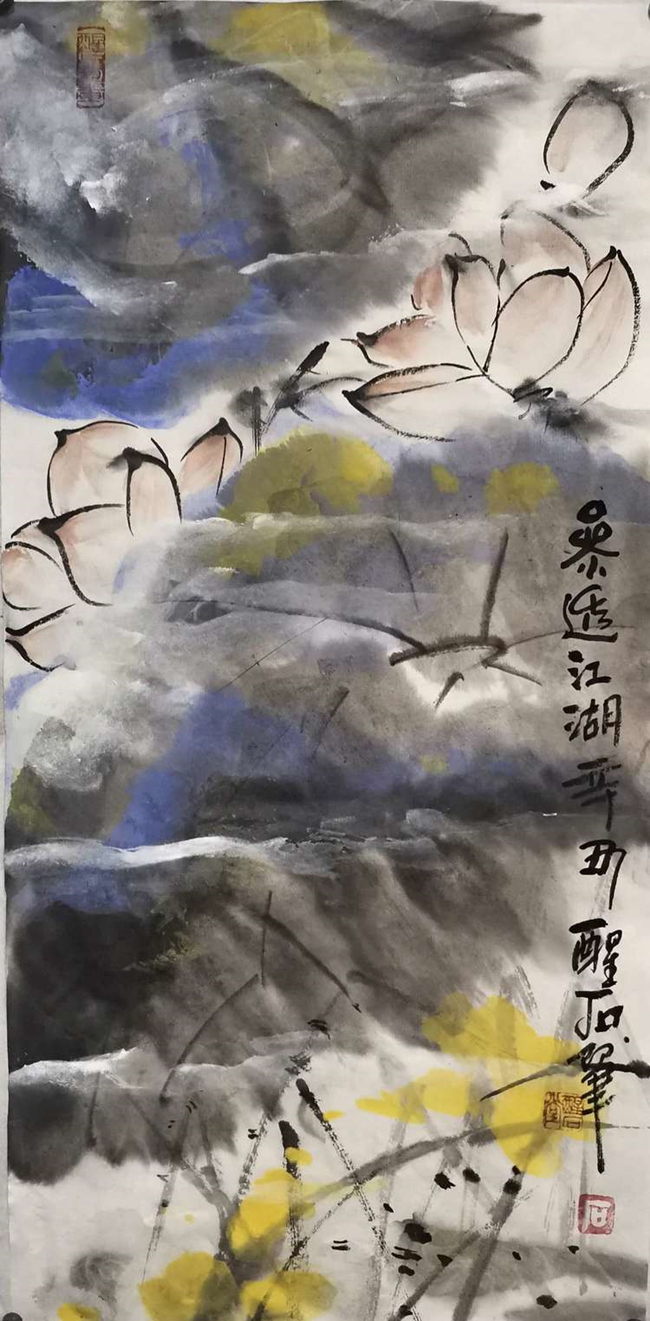 參透江湖辛丑醒石筆
石